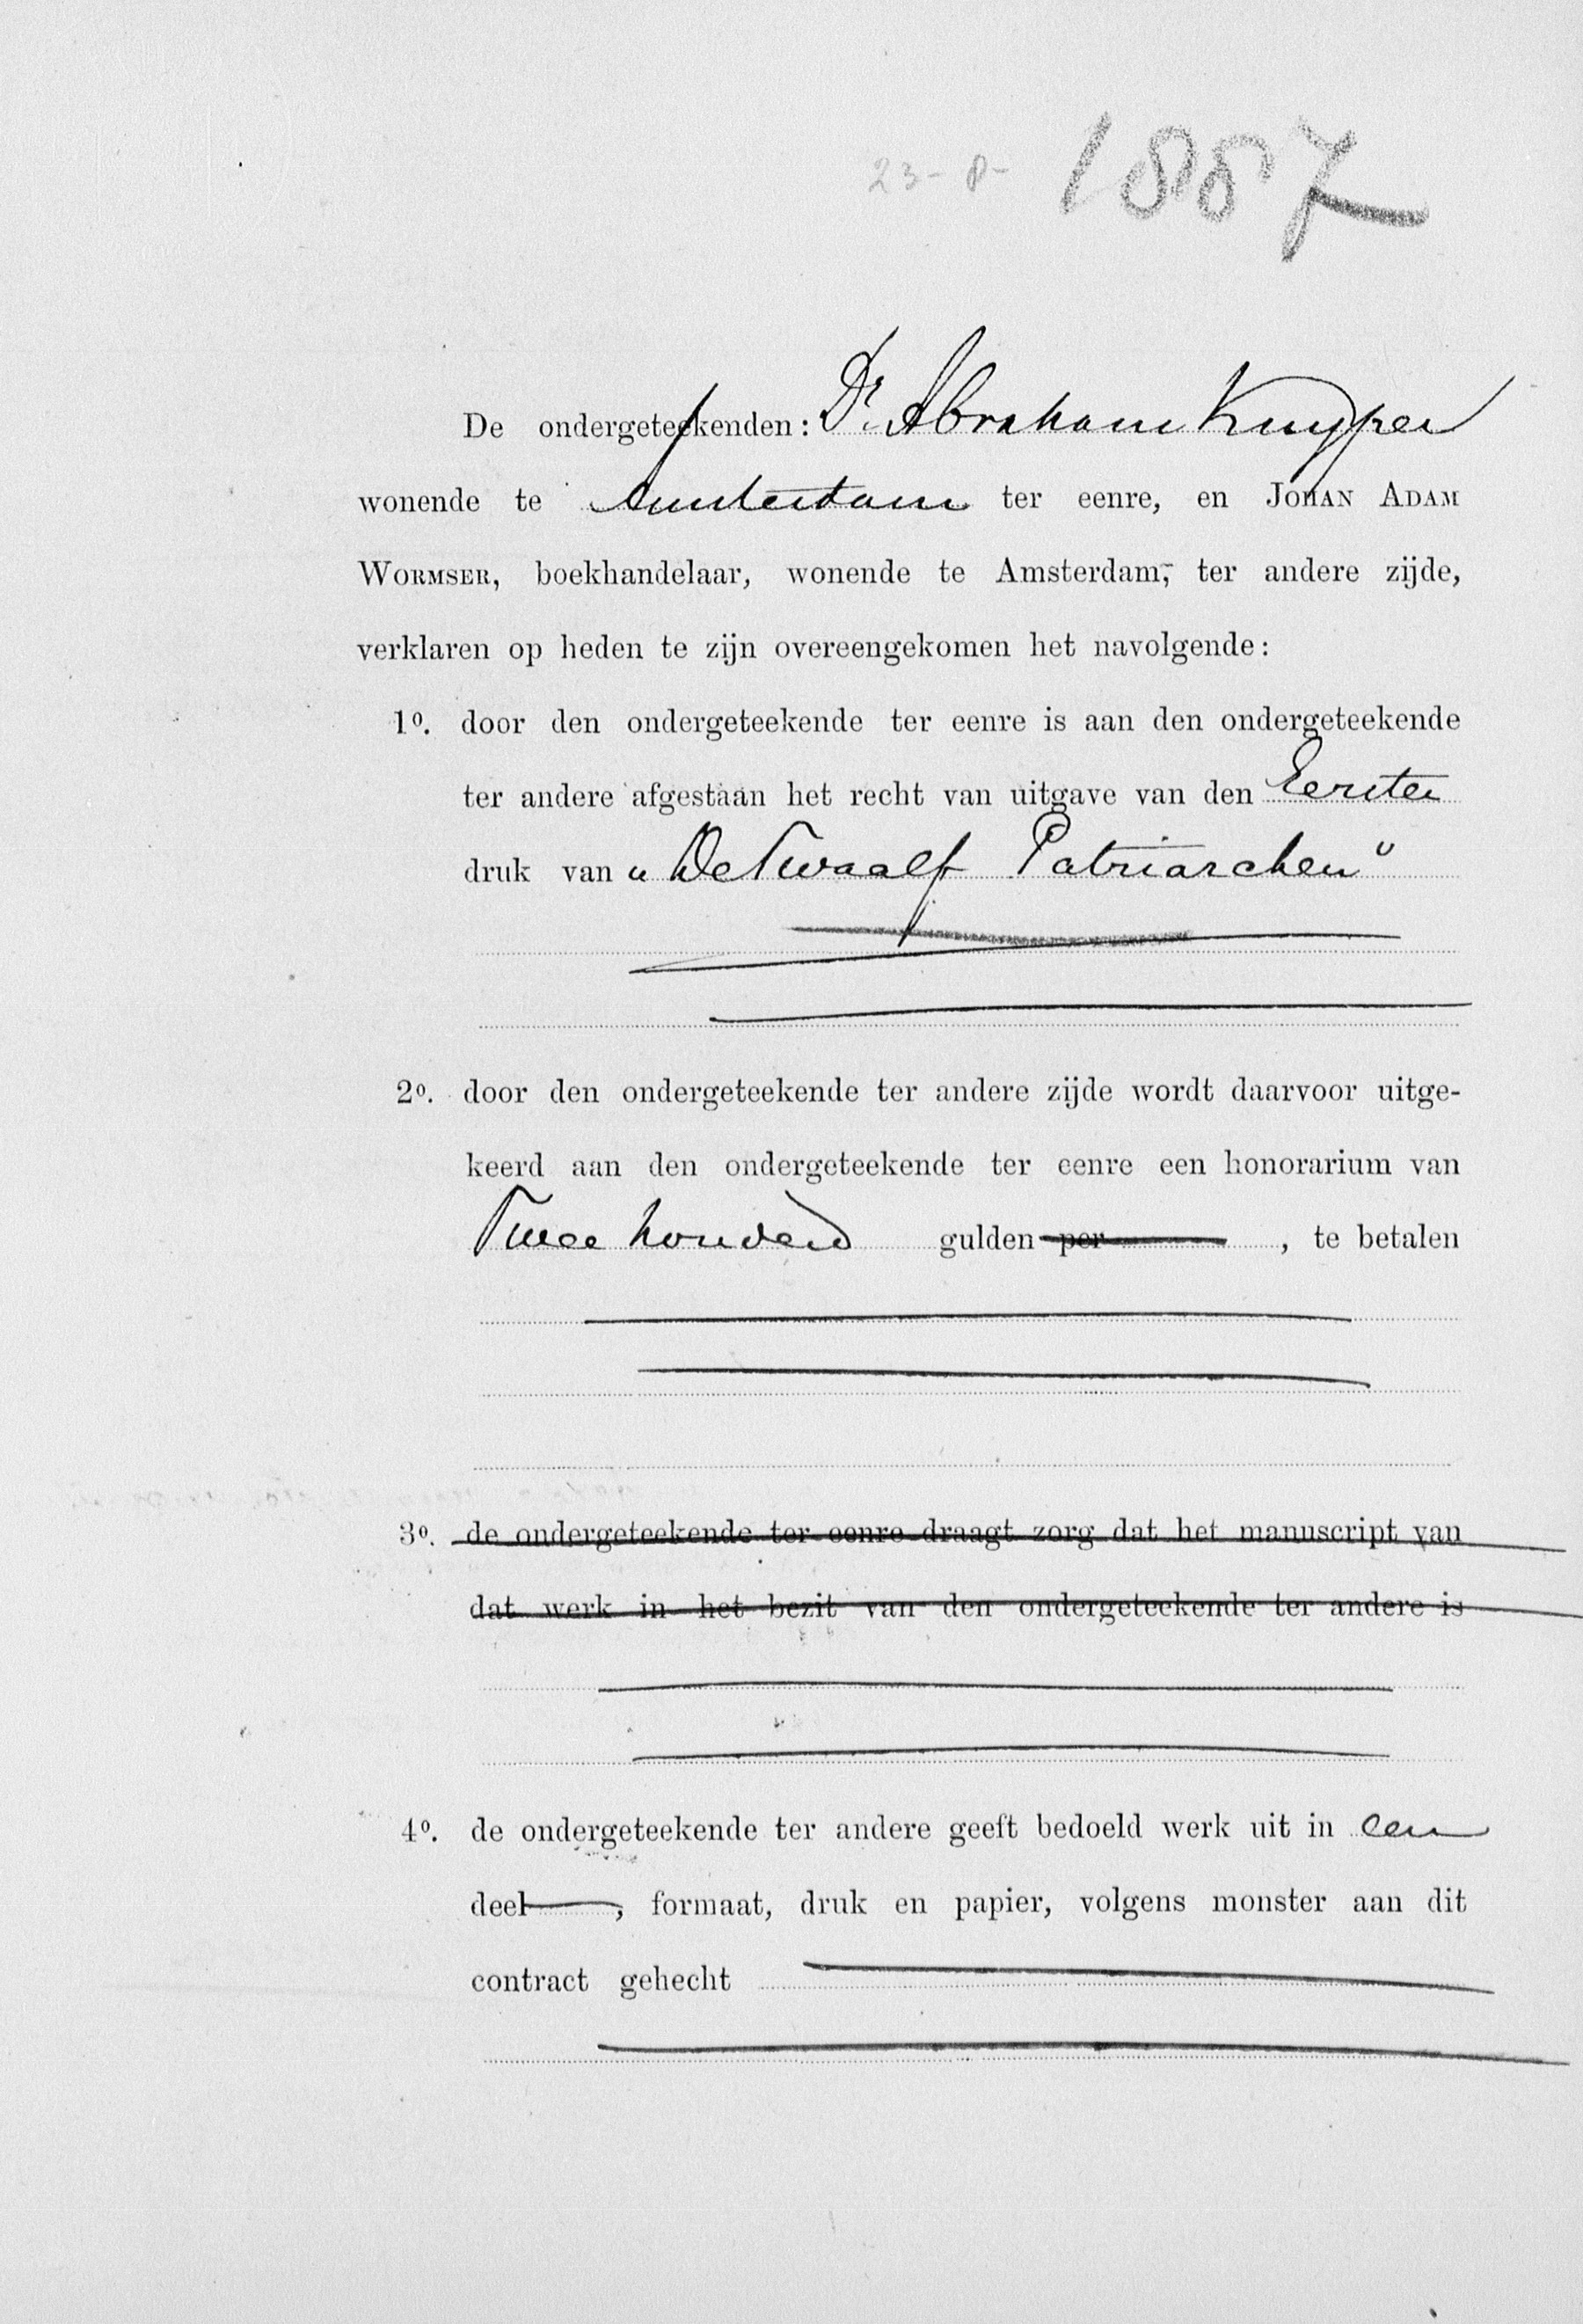 23-8- 1887
De ondergeteekenden: Dr. Abraham Kuyper
wonende te Amsterdam ter eenre, en JOHAN ADAM
WORMSER, boekhandelaar, wonende te Amsterdam, ter andere zijde,
verklaren op heden te zijn overeengekomen het navolgende:
1o. door den ondergeteekende ter eenre is aan den ondergeteekende
ter andere afgestaan het recht van uitgave van den Eersten
druk van „De Twaalf Patriarchen"
2o. door den ondergeteekende ter andere zijde wordt daarvoor uitge-
keerd aan den ondergeteekende ter eenre een honorarium van
Twee honderd gulden per , te betalen
3o. de ondergeteekende ter eenre draagt zorg dat het manuscript van
dat werk in het bezit van den ondergeteekende ter andere is
4o. de ondergeteekende ter andere geeft bedoeld werk uit in een
deel , formaat, druk en papier, volgens monster aan dit
contract gehecht